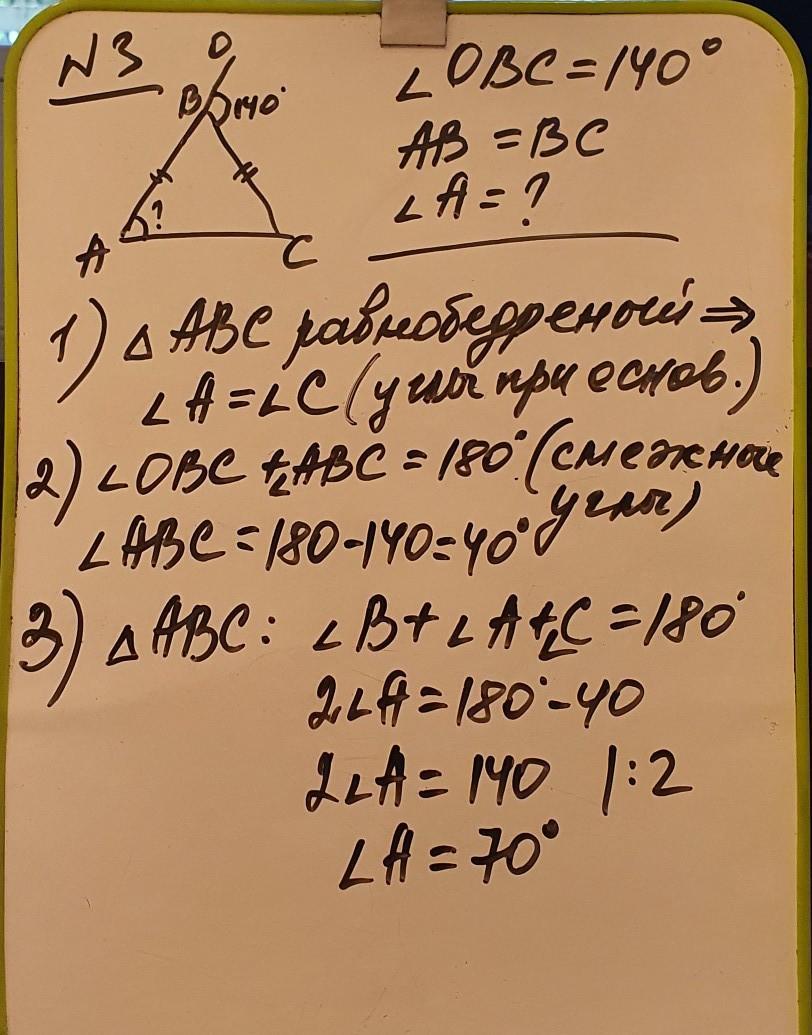 N3
O
B 140°
A ?
C
∠OBC = 140°
AB = BC
∠A = ?
1) △ABC равнобедреный ⇒
∠A = ∠C (углы при основ.)
2) ∠OBC + ∠ABC = 180° (смежные
углы)
∠ABC = 180 - 140 = 40°
3) △ABC: ∠B + ∠A + ∠C = 180°
2∠A = 180° - 40
2∠A = 140 | : 2
∠A = 70°